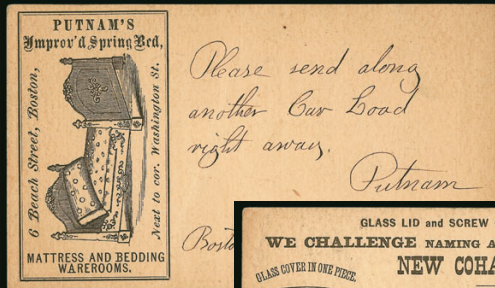 PUTNAM'S
Improv'd Spring Bed,
6 Beach Street, Boston,
Next to cor. Washington St.
MATTRESS AND BEDDING
WAREROOMS.
Please send along
another Car Load
right away.
Putnam
Bost
GLASS LID and SCREW
WE CHALLENGE NAMING A
GLASS COVER IN ONE PIECE.
NEW COHA